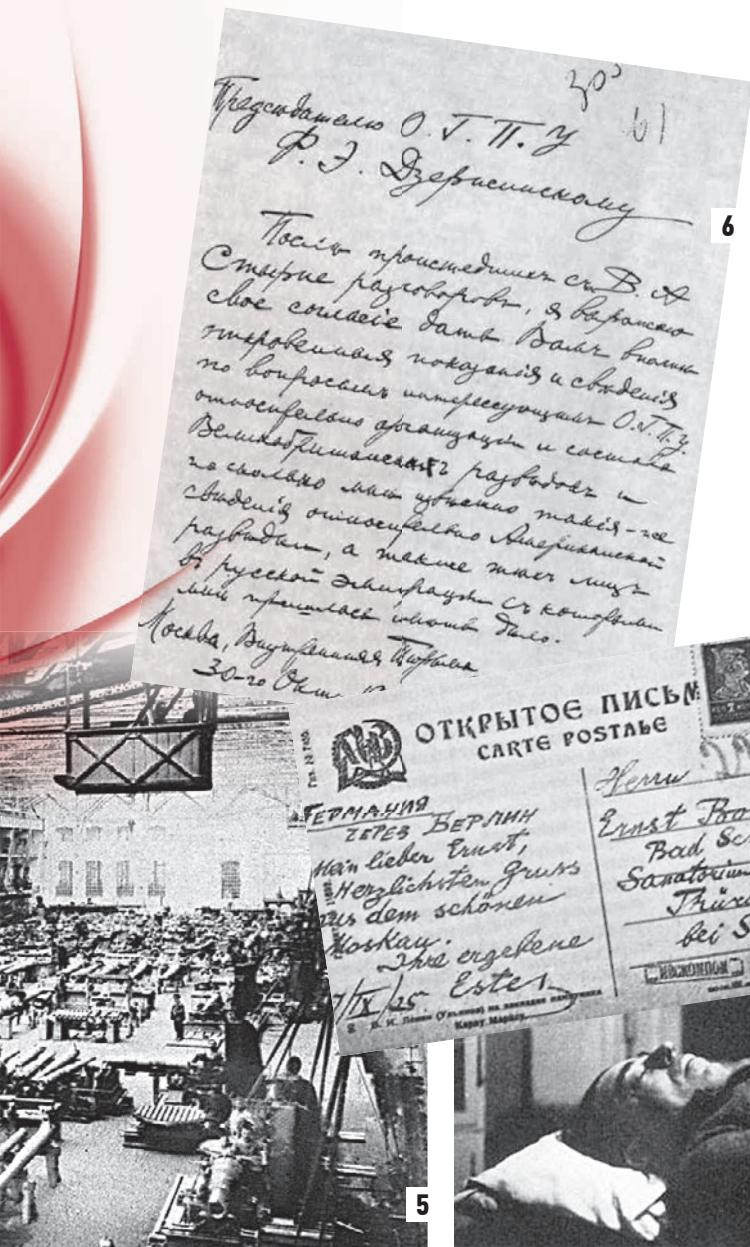 30
61
Председателю О. Г. П. У
Ф. Э. Дзержинскому
6
Послѣ происшедшихъ съ В. А
Стырне разговоровъ, я выражаю
свое согласіе дать Вамъ вполнѣ
откровенныя показанія и свѣденія
по вопросамъ интересующимъ О.Г.П.У.
относительно организаціи и состава
Великобританской развѣдки и
по сколько мнѣ извѣстно такія-же
свѣденія относительно Американской
развѣдки, а также тѣхъ лицъ
въ русской эмиграціи съ которыми
мнѣ пришлось имѣть дѣло.
Москва, Внутренняя Тюрьма
30-го Окт
ОТКРЫТОЕ ПИСЬМ
CARTE POSTALE
ГЕРМАНИЯ
ЧЕРЕЗ БЕРЛИН
Mein lieber Ernst,
Herzlichsten Gruss
aus dem schönen
Moskau.
Ihre ergebene
Ester
/IX/25
В. И. Ленин (Ульянов) на закладке памятника
Карлу Марксу.
Herrn
Ernst
Bad
Sanatorium
Thür
bei S
5